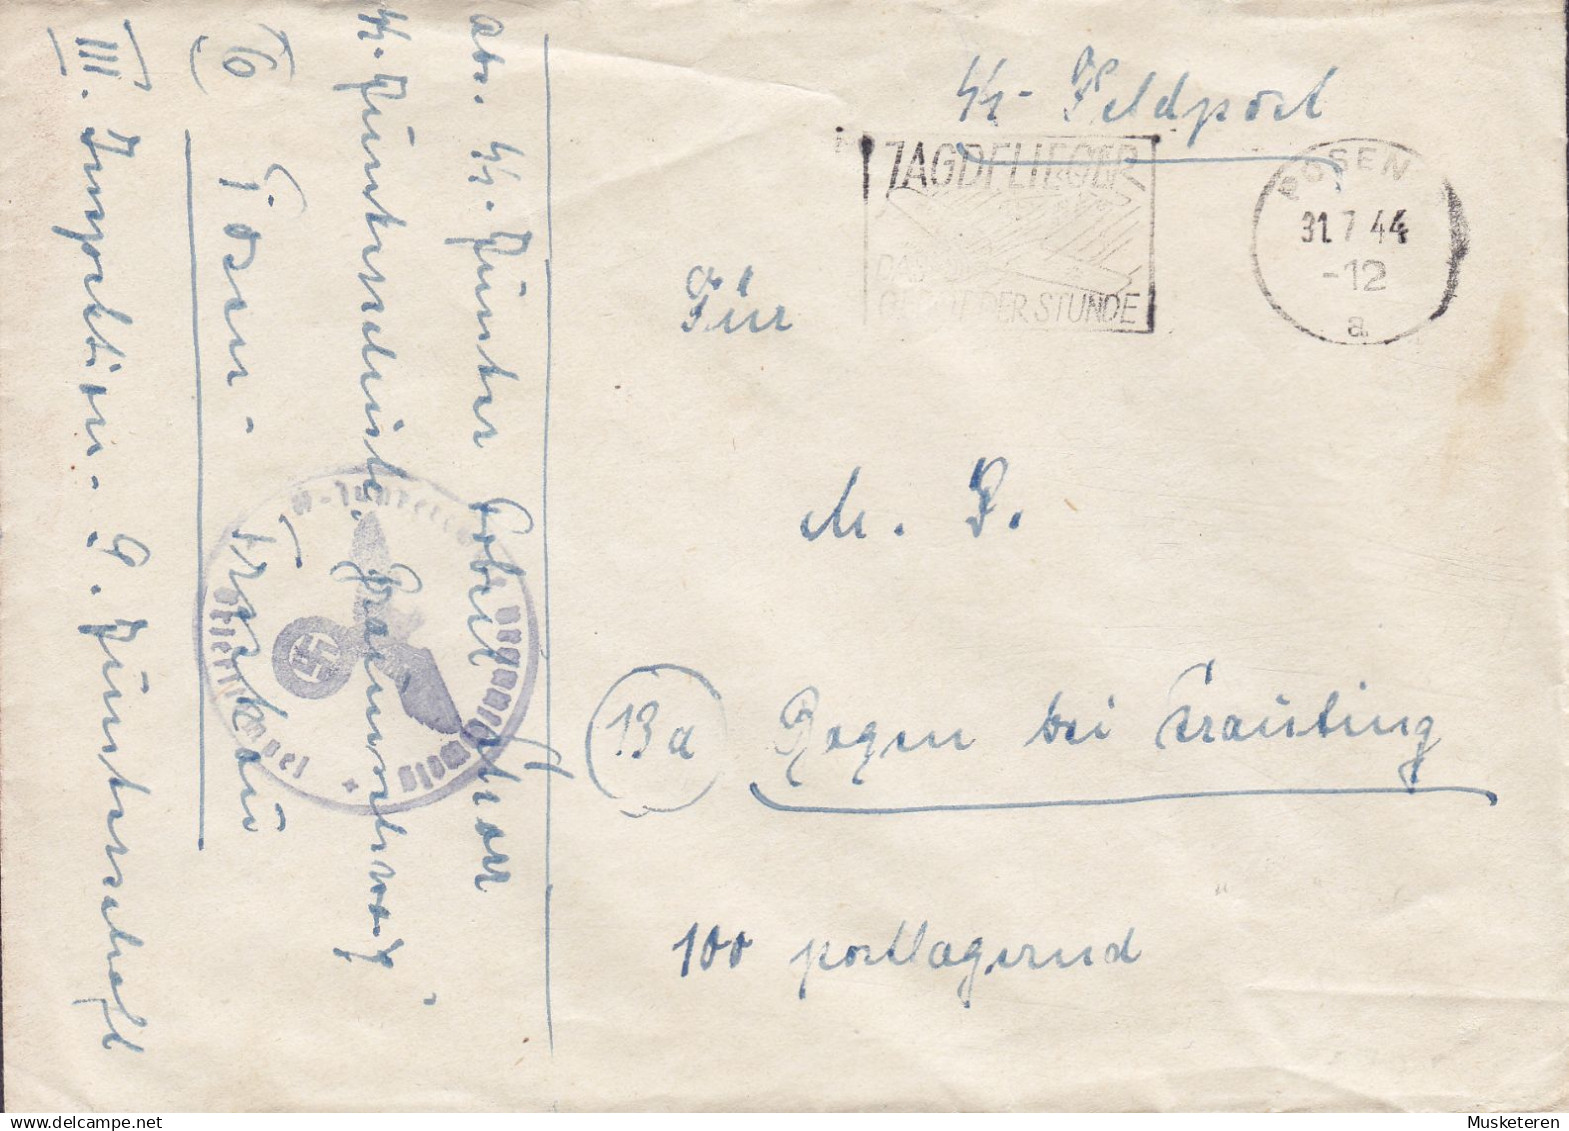 SS-Feldpost
JAGDFLIEGER
DAS
DER STUNDE
POSEN
31.7.44
-12
a
Für
M. P.
13a Rogen bei Trauting
100 postlagernd
Abs. SS-Junker
SS-Junkerschule Braunschweig
(6) Posen - Treskau
III. Inspektion - 9. Junkerschaft
Musketeren